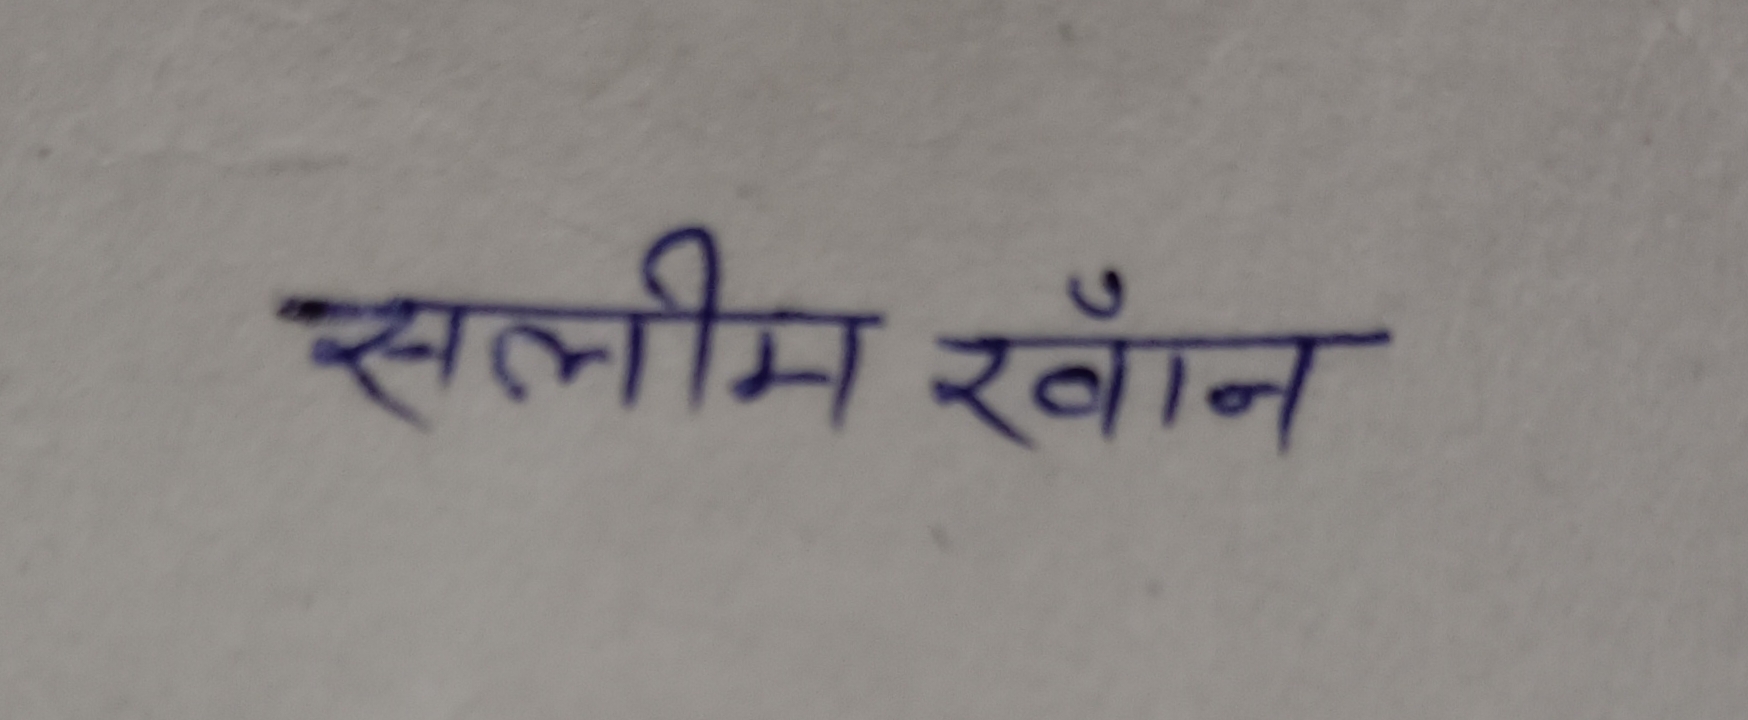 सलीम खाँन